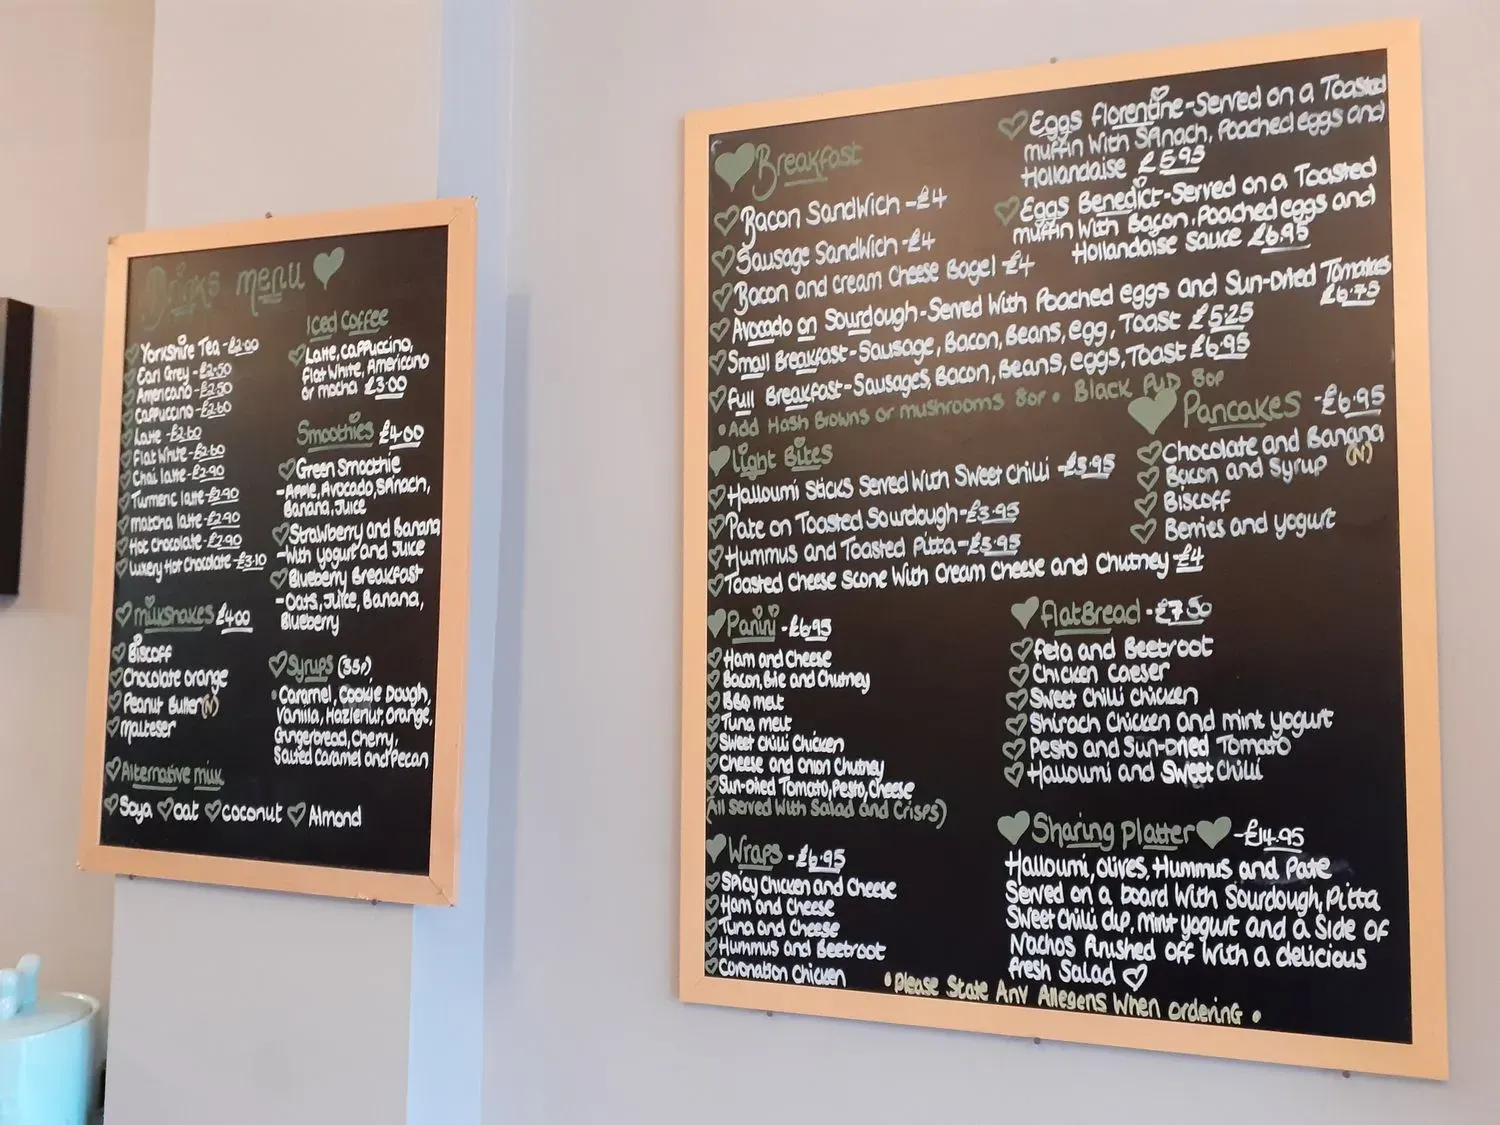 Drinks menu
Yorkshire Tea - £2.00
Earl Grey - £2.50
Americano - £2.50
Cappuccino - £2.60
Latte - £2.60
Flat White - £2.60
Chai latte - £2.90
Turmeric latte - £2.90
Matcha latte - £2.90
Hot Chocolate - £2.90
Luxery Hot Chocolate - £3.10
Milkshakes £4.00
Biscoff
Chocolate orange
Peanut Butter (N)
Malteser
Alternative milk
Soya oat coconut Almond
Iced Coffee
Latte, cappuccino,
Flat White, Americano
or mocha £3.00
Smoothies £4.00
Green Smoothie
- Apple, Avocado, Spinach,
Banana, Juice
Strawberry and Banana
- With yogurt and Juice
Blueberry Breakfast
- Oats, Juice, Banana,
Blueberry
Syrups (35p)
Caramel, Cookie Dough,
Vanilla, Hazlenut, orange,
Gingerbread, Cherry,
Salted Caramel and Pecan
Breakfast
Bacon Sandwich - £4
Sausage Sandwich - £4
Bacon and cream Cheese Bagel - £4
Eggs Florentine - Served on a Toasted
muffin With Spinach, Poached eggs and
Hollandaise £5.95
Eggs Benedict - Served on a Toasted
muffin With Bacon, Poached eggs and
Hollandaise sauce £6.95
Avocado on Sourdough - Served With Poached eggs and Sun-Dried Tomatoes
£6.75
Small Breakfast - Sausage, Bacon, Beans, egg, Toast £5.25
Full Breakfast - Sausages, Bacon, Beans, eggs, Toast £6.95
• Add Hash Browns or mushrooms 80p • Black Pud 80p
Light Bites
Halloumi Sticks Served With Sweet Chilli - £3.95
Pate on Toasted Sourdough - £3.95
Hummus and Toasted Pitta - £3.95
Toasted Cheese Scone With Cream Cheese and Chutney - £4
Pancakes - £6.95
Chocolate and Banana
(N)
Bacon and Syrup
Biscoff
Berries and yogurt
Panini - £6.95
Ham and Cheese
Bacon, Brie and Chutney
BBQ melt
Tuna melt
Sweet Chilli Chicken
Cheese and onion Chutney
Sun-Dried Tomato, Pesto, Cheese
(All served With Salad and Crisps)
Wraps - £6.95
Spicy Chicken and Cheese
Ham and Cheese
Tuna and Cheese
Hummus and Beetroot
Coronation Chicken
FlatBread - £7.50
Feta and Beetroot
Chicken Caeser
Sweet Chilli Chicken
Shirach Chicken and mint yogurt
Pesto and Sun-Dried Tomato
Halloumi and Sweet Chilli
Sharing Platter - £14.95
Halloumi, olives, Hummus and Pate
Served on a board With Sourdough, Pitta
Sweet Chilli dip, mint yogurt and a Side of
Nachos Finished off With a delicious
Fresh Salad
• Please State Any Allegens When ordering •